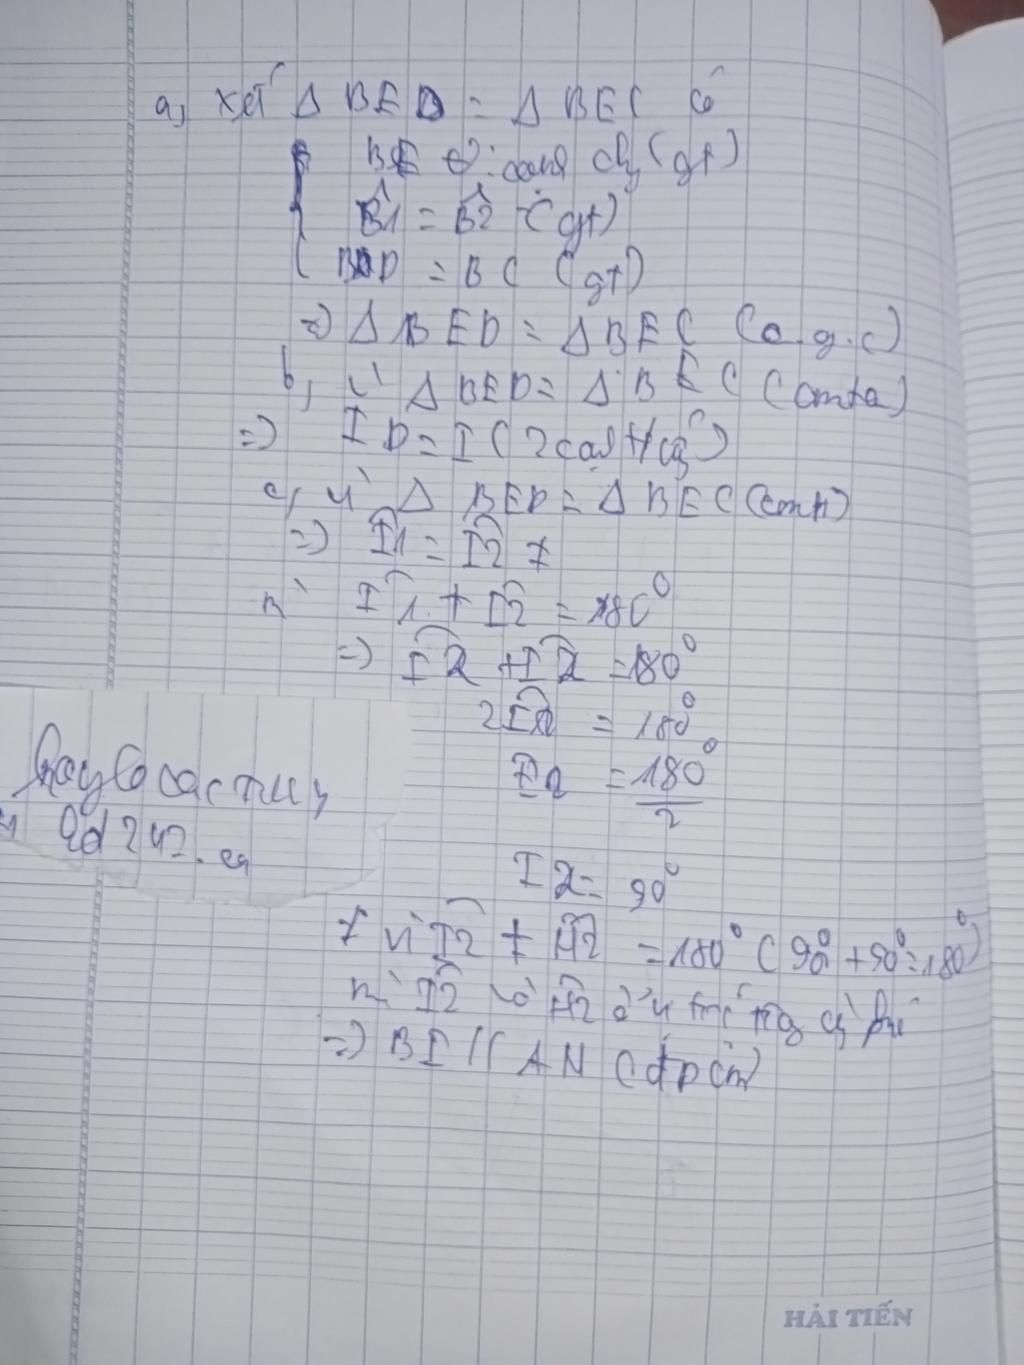 a, xét Δ BED = Δ BEC có
BE là: cạnh ch (gt)
B1 = B2 (gt)
BD = BC (gt)
=> Δ BED = Δ BEC (c.g.c)
b, vì Δ BED = Δ BEC (cmta)
=> ID = IC (2 cạh t/ứg)
c, vì Δ BED = Δ BEC (cmt)
=> I1 = I2
mà I1 + I2 = 180°
=> I2 + I2 = 180°
2I2 = 180°
I2 = 180°
2
I2 = 90°
+ vì I2 + H2 = 180° (90° + 90° = 180°)
mà I2 và H2 ở trg phí
=> BI // AH (đpcm)
2d 247.
HẢI TIẾN